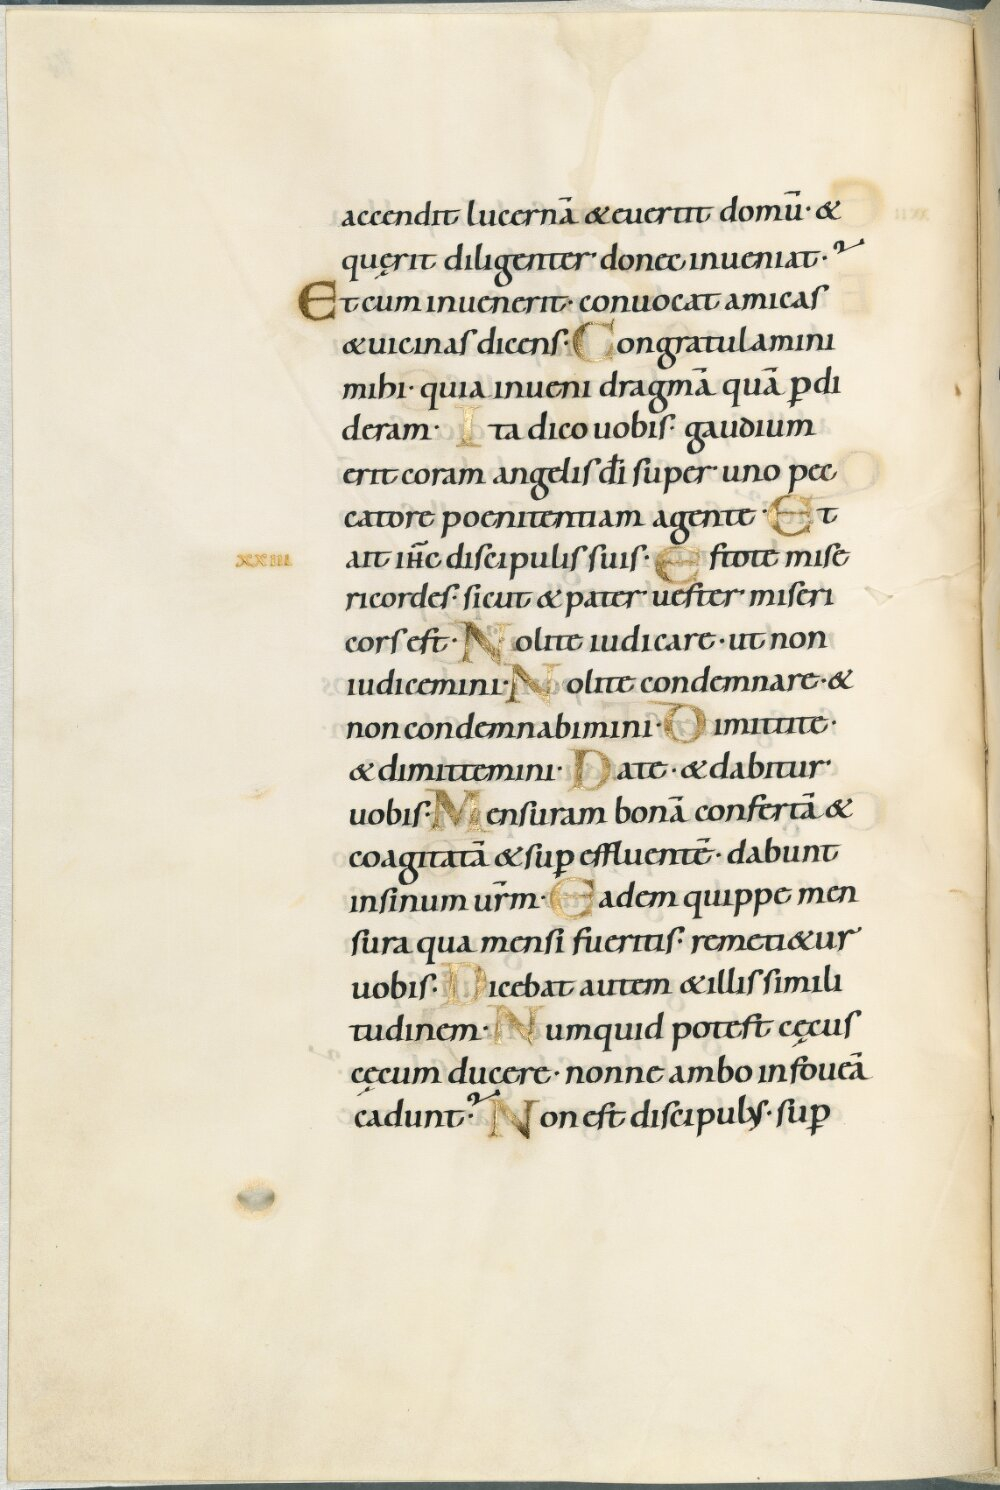 accendit lucernā & euertit domū· &
quęrit diligenter· donec inueniat·
Et cum inuenerit· conuocat amicas
& uicinas dicens· Congratulamini
mihi· quia inueni dragmā quā ꝑdi
deram· Ita dico uobis· gaudium
erit coram angelis dī super uno pec
catore poenitentiam agente· Et
XXIII
ait ihc̄ discipulis suis· Estote mise
ricordes· sicut & pater uester miseri
cors est· Nolite iudicare· ut non
iudicemini· Nolite condemnare· &
non condemnabimini· Dimittite·
& dimittemini· Date· & dabitur
uobis· Mensuram bonā confertā &
coagitatā & suꝑ effluentē· dabunt
in sinum ur̄m· Eadem quippe men
sura qua mensi fueritis· remeti&ur
uobis· Dicebat autem & illis simili
tudinem· Numquid potest cęcus
cęcum ducere· nonne ambo in foueā
cadunt· Non est discipulus· suꝑ